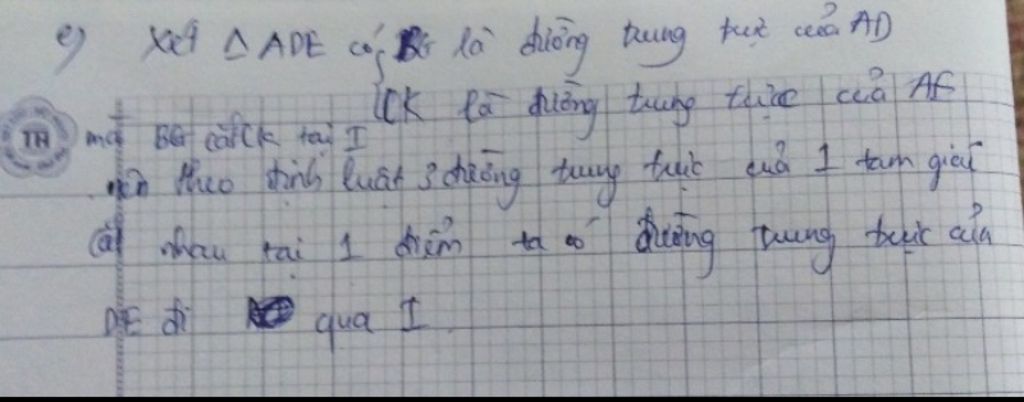 e) Xét △ ADE có BG là đường trung trực của AD
CK là đường trung trực của AE
TH
mà BG cắt CK tại I
nên theo định luật 3 đường trung trực của 1 tam giác
cắt nhau tại 1 điểm ta có đường trung trực của
DE đi qua I